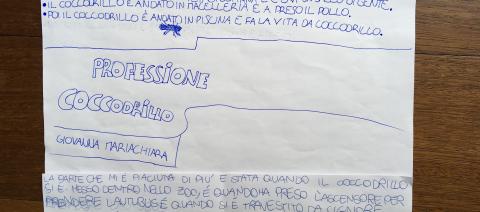 •IL COCCODRILLO È ANDATO IN MACELLERIA E A PRESO IL POLLO.
•POI IL COCCODRILLO È ANDATO IN PISCINA E FA LA VITA DA COCCODRILLO.
PROFESSIONE
COCCODRILLO
GIOVANNA MARIACHIARA
LA PARTE CHE MI È PIACIUNA DI PIU' E STATA QUANDO IL COCCODRILLO
SI E MESSO DENTRO NELLO ZOO, É QUANDO HA PRESO L'ASCENSORE PER
PRENDERE L'AUTUBUS É QUANDO SI E TRAVESTITO DA SIGNORE